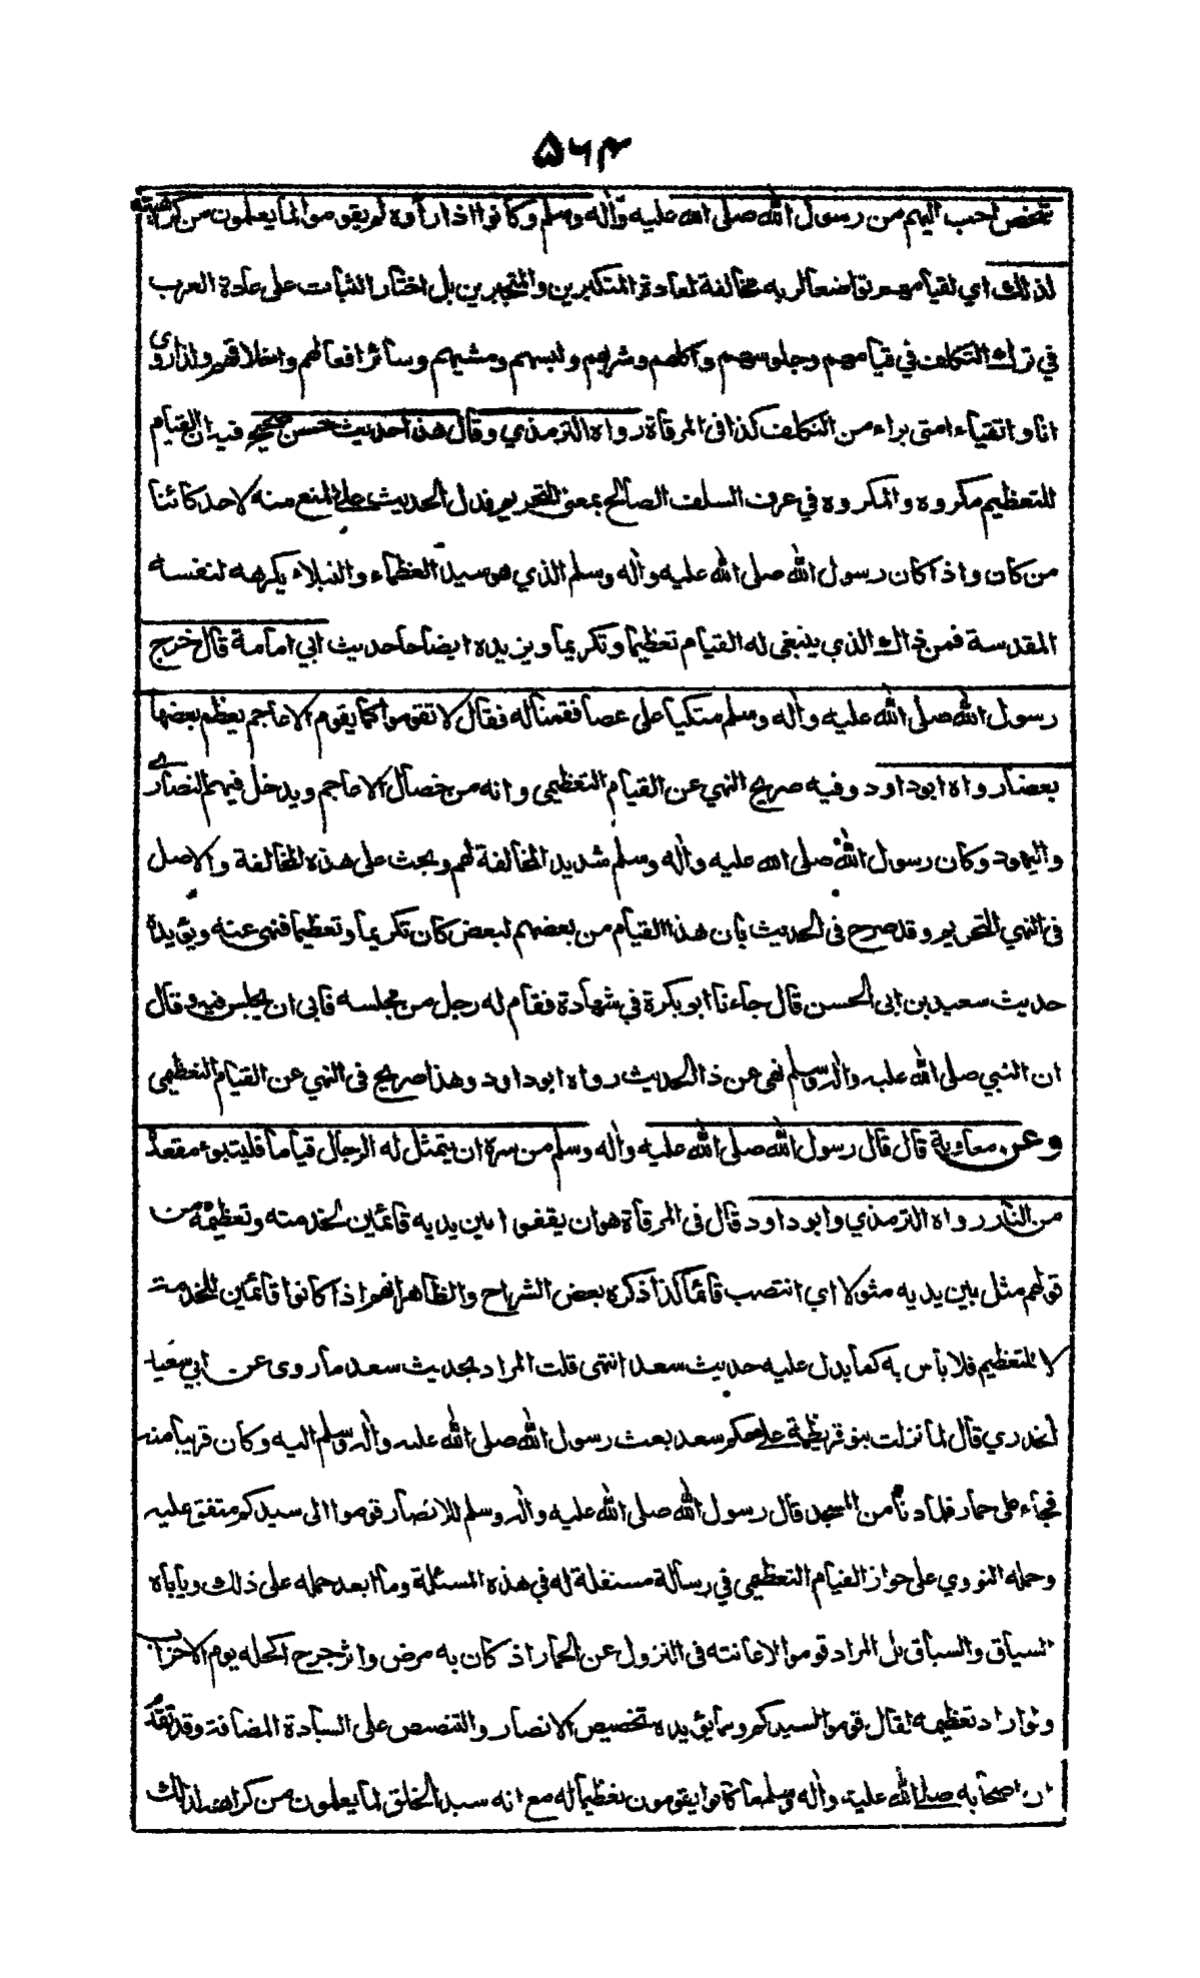 ۵۶۴
شخص احب اليهم من رسول الله صلى الله عليه وآله وسلم وكانوا اذا رأوه لم يقوموا لما يعلمون من كراهيته
لذلك اي لقيامهم تواضعا لربه مخالفة لعادة المتكبرين والمتجبرين بل اختار الثبات على عادة العرب
في ترك التكلف في قيامهم وجلوسهم واكلهم وشربهم ولبسهم ومشيهم وسائر افعالهم واخلاقهم ولذا روى
انا واتقياء امتى براء من التكلف كذا فى المرقاة رواه الترمذي وقال هذا حديث حسن صحيح فيه ان القيام
للتعظيم مكروه والمكروه في عرف السلف الصالح بمعنى التحريم فدل الحديث على المنع منه لاحد كائنا
من كان واذا كان رسول الله صلى الله عليه وآله وسلم الذي هو سيد العظماء والنبلاء يكرهه لنفسه
المقدسة فمن ذاك الذي ينبغى له القيام تعظيما وتكريما ويزيده ايضاحا حديث ابي امامة قال خرج
رسول الله صلى الله عليه وآله وسلم متكيا على عصا فقمنا له فقال لا تقوموا كما يقوم الاعاجم يعظم بعضها
بعضا رواه ابوداود وفيه صريح النهي عن القيام التعظيمى وانه من خصال الاعاجم ويدخل فيهم النصارى
واليهود وكان رسول الله صلى الله عليه وآله وسلم شديد المخالفة لهم ويحث على هذه المخالفة والاصل
فى النهي التحريم وقد صرح فى الحديث بان هذا القيام من بعضهم لبعض كان تكريما وتعظيما فنهى عنه ويؤيده
حديث سعيد بن ابى الحسن قال جاءنا ابو بكرة في شهادة فقام له رجل من مجلسه فابى ان يجلس فيه وقال
ان النبي صلى الله عليه وآله وسلم نهى عن ذا الحديث رواه ابوداود وهذا صريح فى النهي عن القيام التعظيمى
وعن معاوية قال قال رسول الله صلى الله عليه وآله وسلم من سره ان يتمثل له الرجال قياما فليتبوء مقعده
من النار رواه الترمذي وابوداود قال فى المرقاة هو ان يقفوا بين يديه قائمين لخدمته وتعظيمه من
قولهم مثل بين يديه مثولا اي انتصب قائما كذا ذكره بعض الشراح والظاهر انهم اذا كانوا قائمين للخدمة
لا للتعظيم فلا باس به كما يدل عليه حديث سعد انتهى قلت المراد بحديث سعد ما روى عن ابي سعيد
الخدري قال لما نزلت بنو قريظة على حكم سعد بعث رسول الله صلى الله عليه وآله وسلم اليه وكان قريبا منه
فجاء على حمار فلما دنا من المسجد قال رسول الله صلى الله عليه وآله وسلم للانصار قوموا الى سيدكم متفق عليه
وحمله النووي على جواز القيام التعظيمى في رسالة مستقلة له في هذه المسئلة وما ابعد حمله على ذلك ويأباه
السياق والسباق بل المراد قوموا لاعانته فى النزول عن الحمار اذ كان به مرض واثر جرح اكحله يوم الاحزاب
ولو اراد تعظيمه لقال قوموا لسيدكم ومما يؤيده تخصيص الانصار والتنصيص على السيادة المضافة وقد تقدم
ان اصحابه صلى الله عليه وآله وسلم ما كانوا يقومون تعظيما له مع انه سيد الخلق لما يعلمون من كراهته لذلك